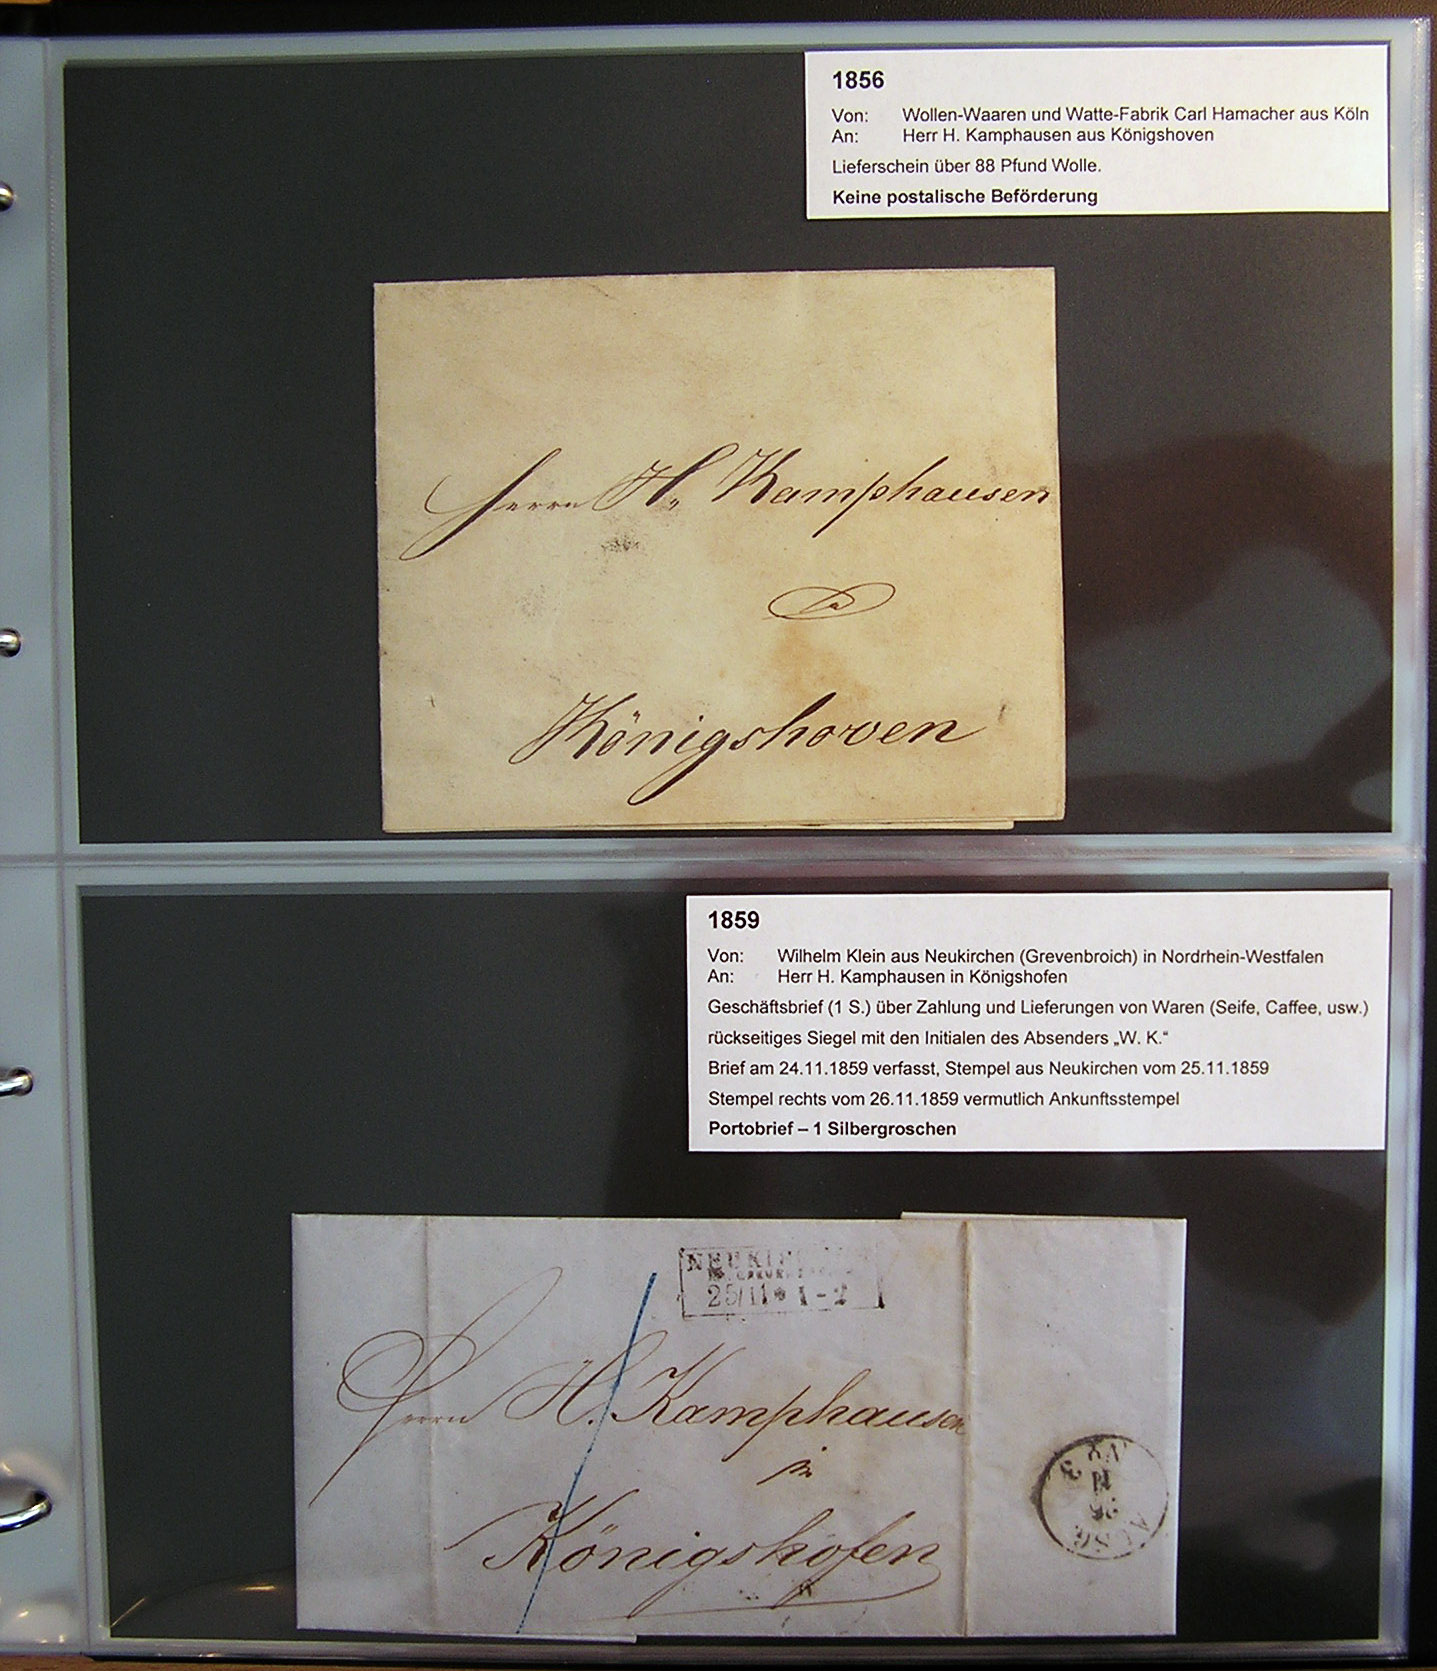 1856
Von: Wollen-Waaren und Watte-Fabrik Carl Hamacher aus Köln
An: Herr H. Kamphausen aus Königshoven
Lieferschein über 88 Pfund Wolle.
Keine postalische Beförderung
Herrn H. Kamphausen
Königshoven
1859
Von: Wilhelm Klein aus Neukirchen (Grevenbroich) in Nordrhein-Westfalen
An: Herr H. Kamphausen in Königshofen
Geschäftsbrief (1 S.) über Zahlung und Lieferungen von Waren (Seife, Caffee, usw.)
rückseitiges Siegel mit den Initialen des Absenders „W. K.“
Brief am 24.11.1859 verfasst, Stempel aus Neukirchen vom 25.11.1859
Stempel rechts vom 26.11.1859 vermutlich Ankunftsstempel
Portobrief – 1 Silbergroschen
25/11 * 1-2
Herrn H. Kamphausen
in
Königshofen
AUSG
26
11